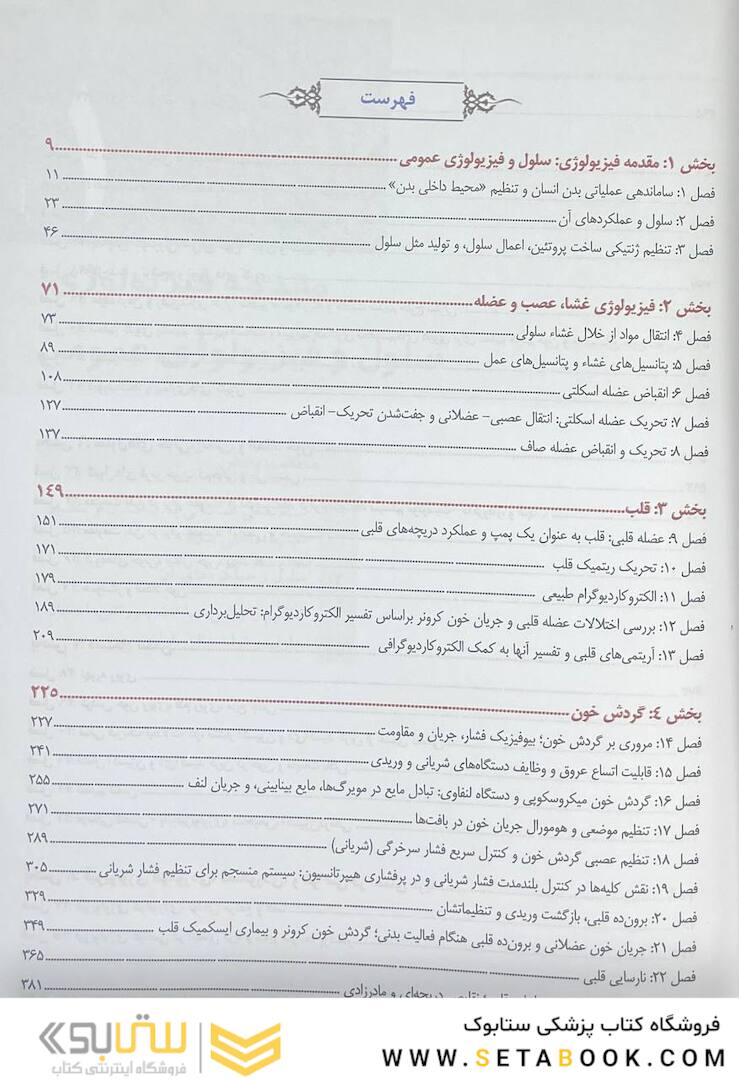 فهرست
بخش ۱: مقدمه فیزیولوژی: سلول و فیزیولوژی عمومی ۹
فصل ۱: ساماندهی عملیاتی بدن انسان و تنظیم «محیط داخلی بدن» ۱۱
فصل ۲: سلول و عملکردهای آن ۲۳
فصل ۳: تنظیم ژنتیکی ساخت پروتئین، اعمال سلول، و تولید مثل سلول ۴۶
بخش ۲: فیزیولوژی غشا، عصب و عضله ۷۱
فصل ۴: انتقال مواد از خلال غشاء سلولی ۷۳
فصل ۵: پتانسیل‌های غشاء و پتانسیل‌های عمل ۸۹
فصل ۶: انقباض عضله اسکلتی ۱۰۸
فصل ۷: تحریک عضله اسکلتی: انتقال عصبی- عضلانی و جفت‌شدن تحریک- انقباض ۱۲۷
فصل ۸: تحریک و انقباض عضله صاف ۱۳۷
بخش ۳: قلب ۱۴۹
فصل ۹: عضله قلبی: قلب به عنوان یک پمپ و عملکرد دریچه‌های قلبی ۱۵۱
فصل ۱۰: تحریک ریتمیک قلب ۱۷۱
فصل ۱۱: الکتروکاردیوگرام طبیعی ۱۷۹
فصل ۱۲: بررسی اختلالات عضله قلبی و جریان خون کرونر براساس تفسیر الکتروکاردیوگرام: تحلیل‌برداری ۱۸۹
فصل ۱۳: آریتمی‌های قلبی و تفسیر آنها به کمک الکتروکاردیوگرافی ۲۰۹
بخش ۴: گردش خون ۲۲۵
فصل ۱۴: مروری بر گردش خون؛ بیوفیزیک فشار، جریان و مقاومت ۲۲۷
فصل ۱۵: قابلیت اتساع عروق و وظایف دستگاه‌های شریانی و وریدی ۲۴۱
فصل ۱۶: گردش خون میکروسکوپی و دستگاه لنفاوی: تبادل مایع در مویرگ‌ها، مایع بینابینی، و جریان لنف ۲۵۵
فصل ۱۷: تنظیم موضعی و هومورال جریان خون در بافت‌ها ۲۷۱
فصل ۱۸: تنظیم عصبی گردش خون و کنترل سریع فشار سرخرگی (شریانی) ۲۸۹
فصل ۱۹: نقش کلیه‌ها در کنترل بلندمدت فشار شریانی و در پرفشاری هیپرتانسیون: سیستم منسجم برای تنظیم فشار شریانی ۳۰۵
فصل ۲۰: برون‌ده قلبی، بازگشت وریدی و تنظیماتشان ۳۲۹
فصل ۲۱: جریان خون عضلانی و برون‌ده قلبی هنگام فعالیت بدنی؛ گردش خون کرونر و بیماری ایسکمیک قلب ۳۴۹
فصل ۲۲: نارسایی قلبی ۳۶۵
دریچه‌ای و مادرزادی ۳۸۱
فروشگاه کتاب پزشکی ستابوک
WWW.SETABOOK.COM
ستابوک
فروشگاه اینترنتی کتاب